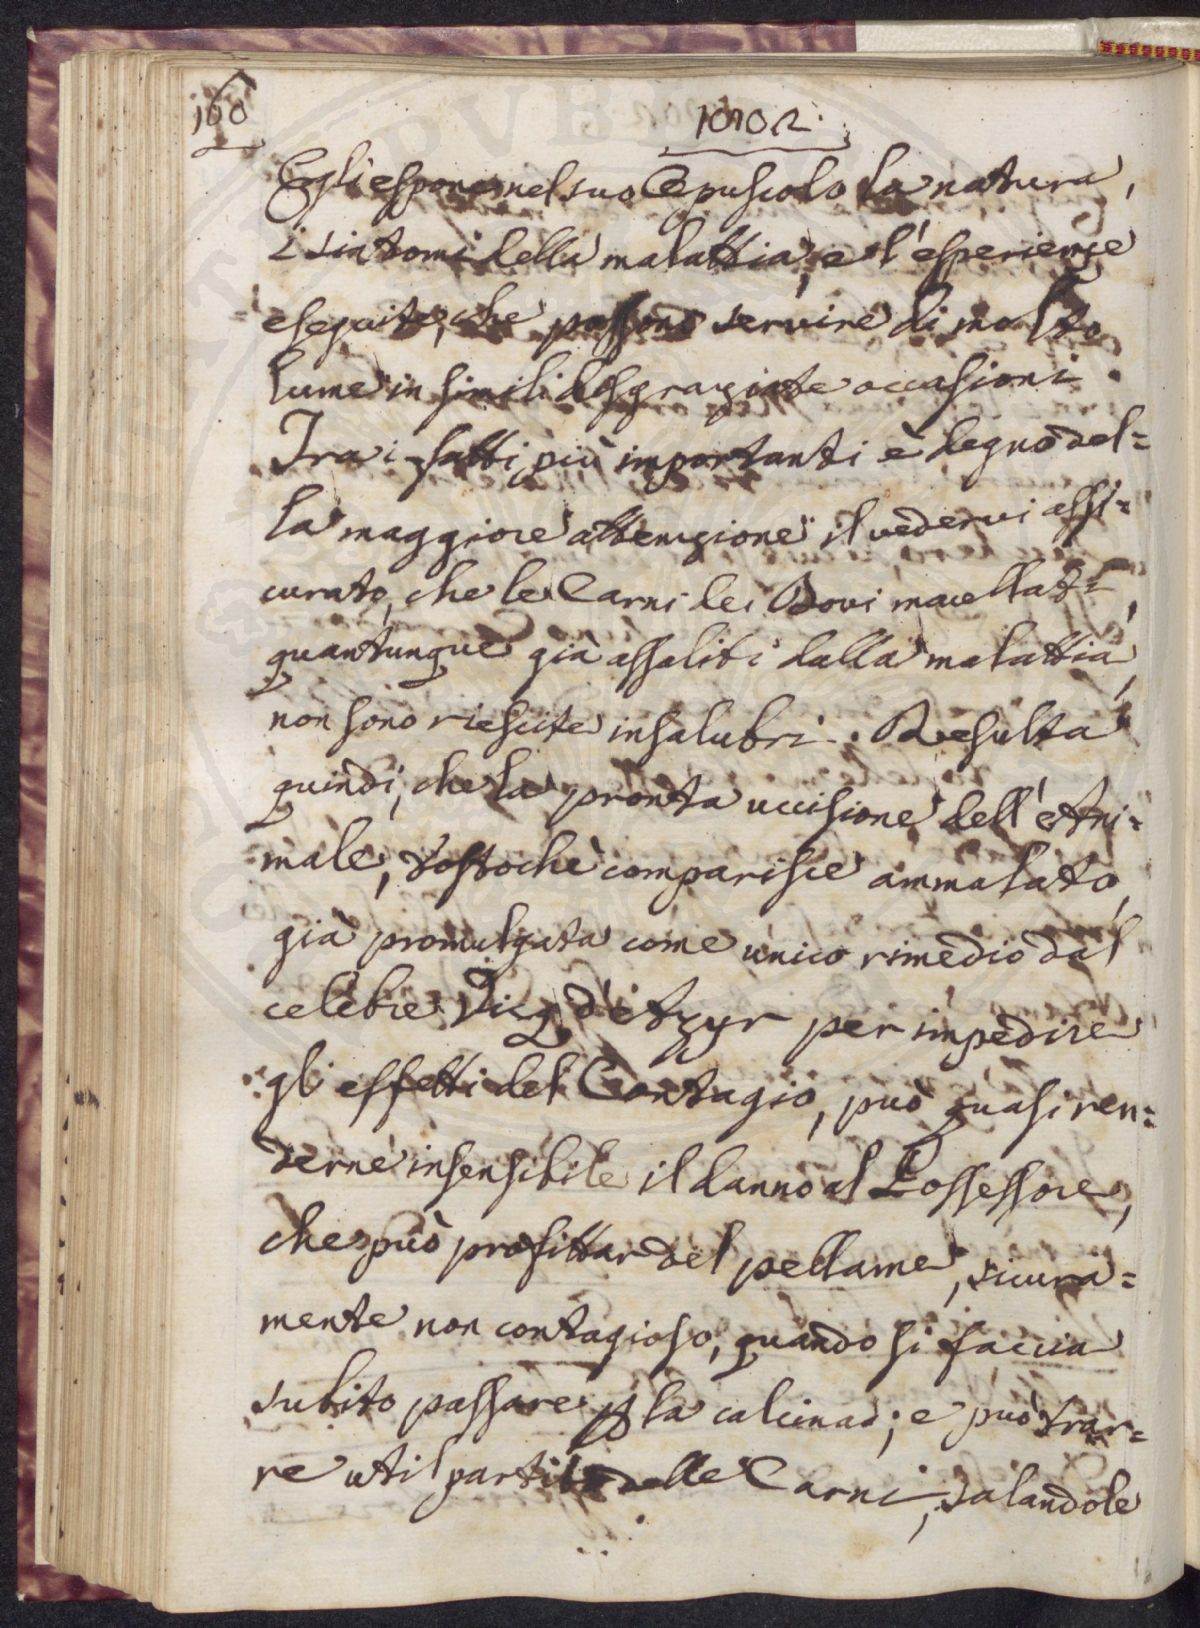 160
Egli espone nel suo Opuscolo la natura,
i sintomi della malattia, e l'esperienze
eseguite, che possono servire di molto
lume in simili disgraziate occasioni.
Tra i fatti più importanti è degno del=
la maggiore attenzione il vedervi assi=
curato, che le Carni dei Bovi macellati,
quantunque già assaliti dalla malattia,
non sono riescite insalubri. Resulta
quindi, che la pronta uccisione dell'Ani=
male, tostochè comparisce ammalato,
già promulgata come unico rimedio dal
celebre Vicq d'Azyr per impedire
gli effetti del Contagio, può quasi ren=
derne insensibile il danno al Possessore,
che può profittar del pellame, sicura=
mente non contagioso, quando si faccia
subito passare p la calcina; e può trar=
re util partito delle Carni, salandole